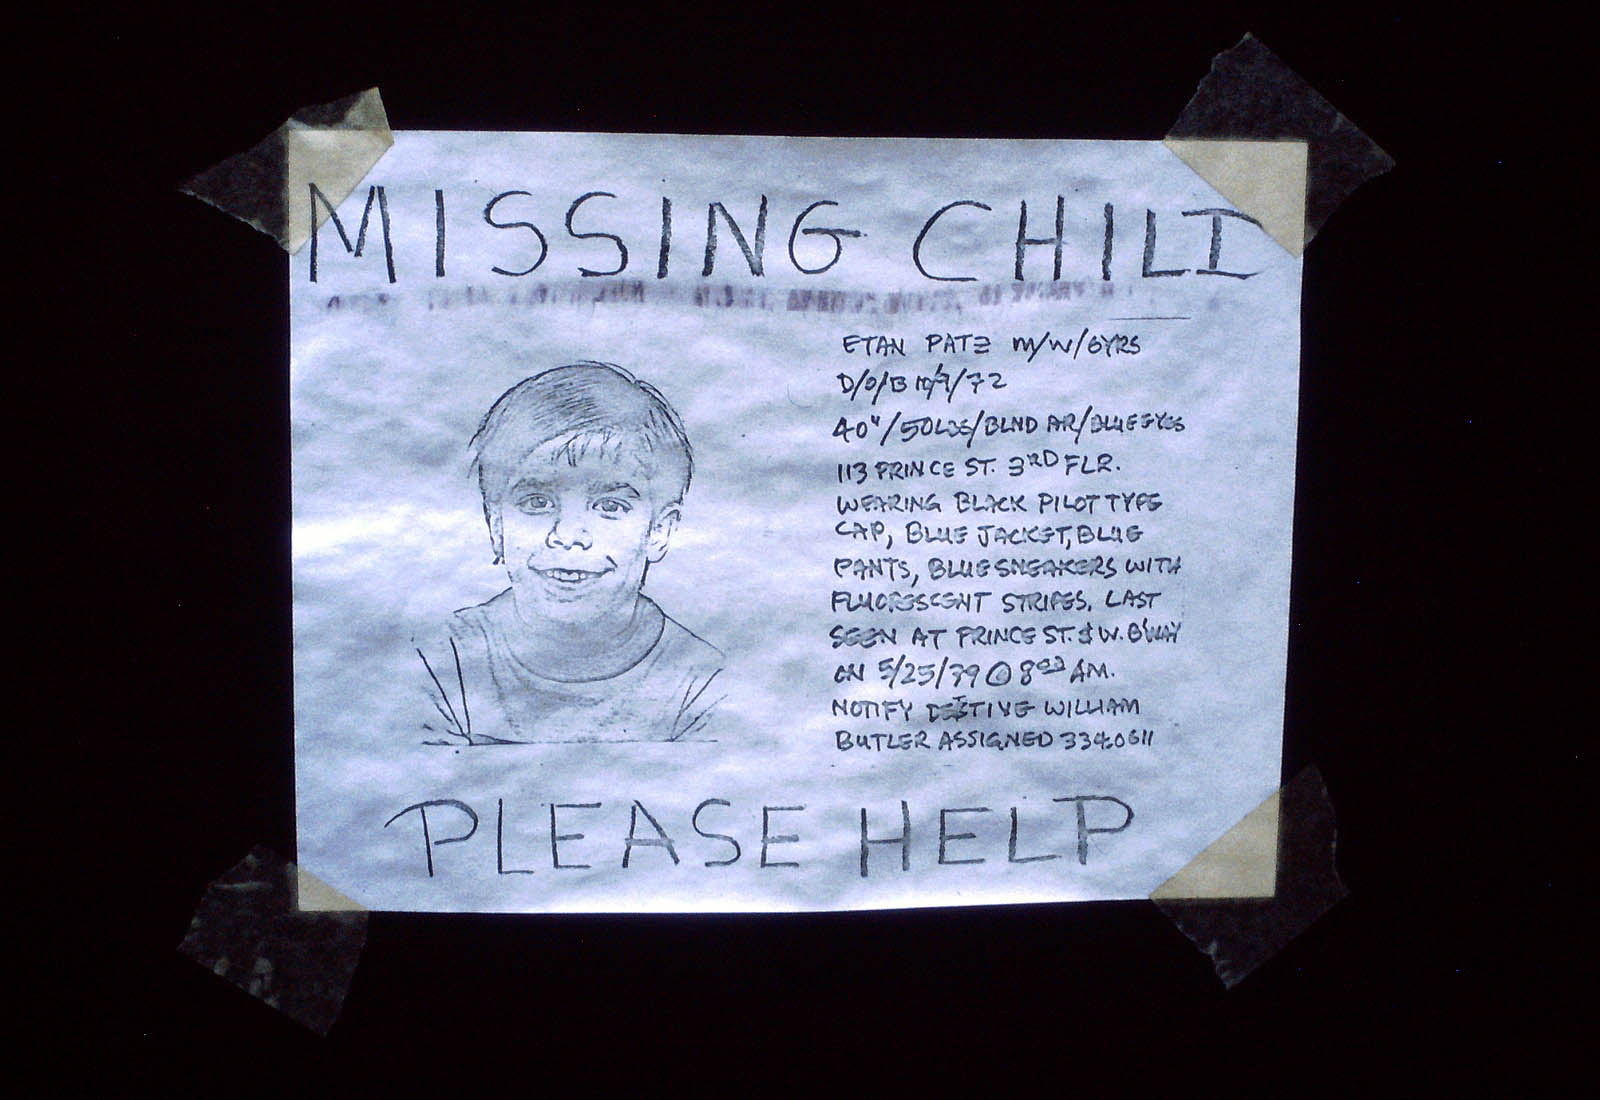 MISSING CHILD
ETAN PATZ M/W/6YRS
D/O/B 10/9/72
40"/50LBS/BLND AR/BLUE EYES
113 PRINCE ST. 3RD FLR.
WEARING BLACK PILOT TYPE
CAP, BLUE JACKET, BLUE
PANTS, BLUE SNEAKERS WITH
FLUORESCENT STRIPES. LAST
SEEN AT PRINCE ST. & W. B'WAY
ON 5/25/79 @ 8 AM.
NOTIFY WILLIAM
BUTLER ASSIGNED 3340611
PLEASE HELP